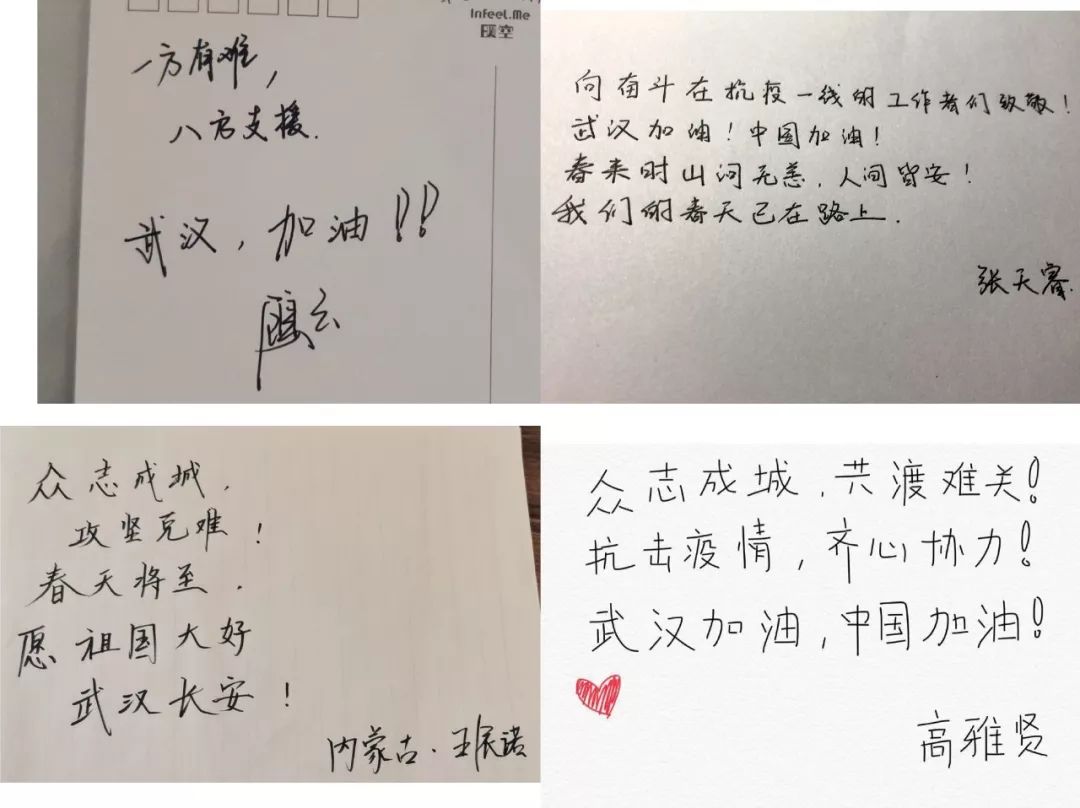 Infeel.Me
一方有难，
八方支援.
武汉，加油！！
向奋斗在抗疫一线的工作者们致敬！
武汉加油！中国加油！
春来时山河无恙，人间皆安！
我们的春天已在路上.
张天睿.
众志成城，
攻坚克难！
春天将至，
愿祖国大好
武汉长安！
内蒙古·王民诺
众志成城，共渡难关！
抗击疫情，齐心协力！
武汉加油，中国加油！
高雅贤